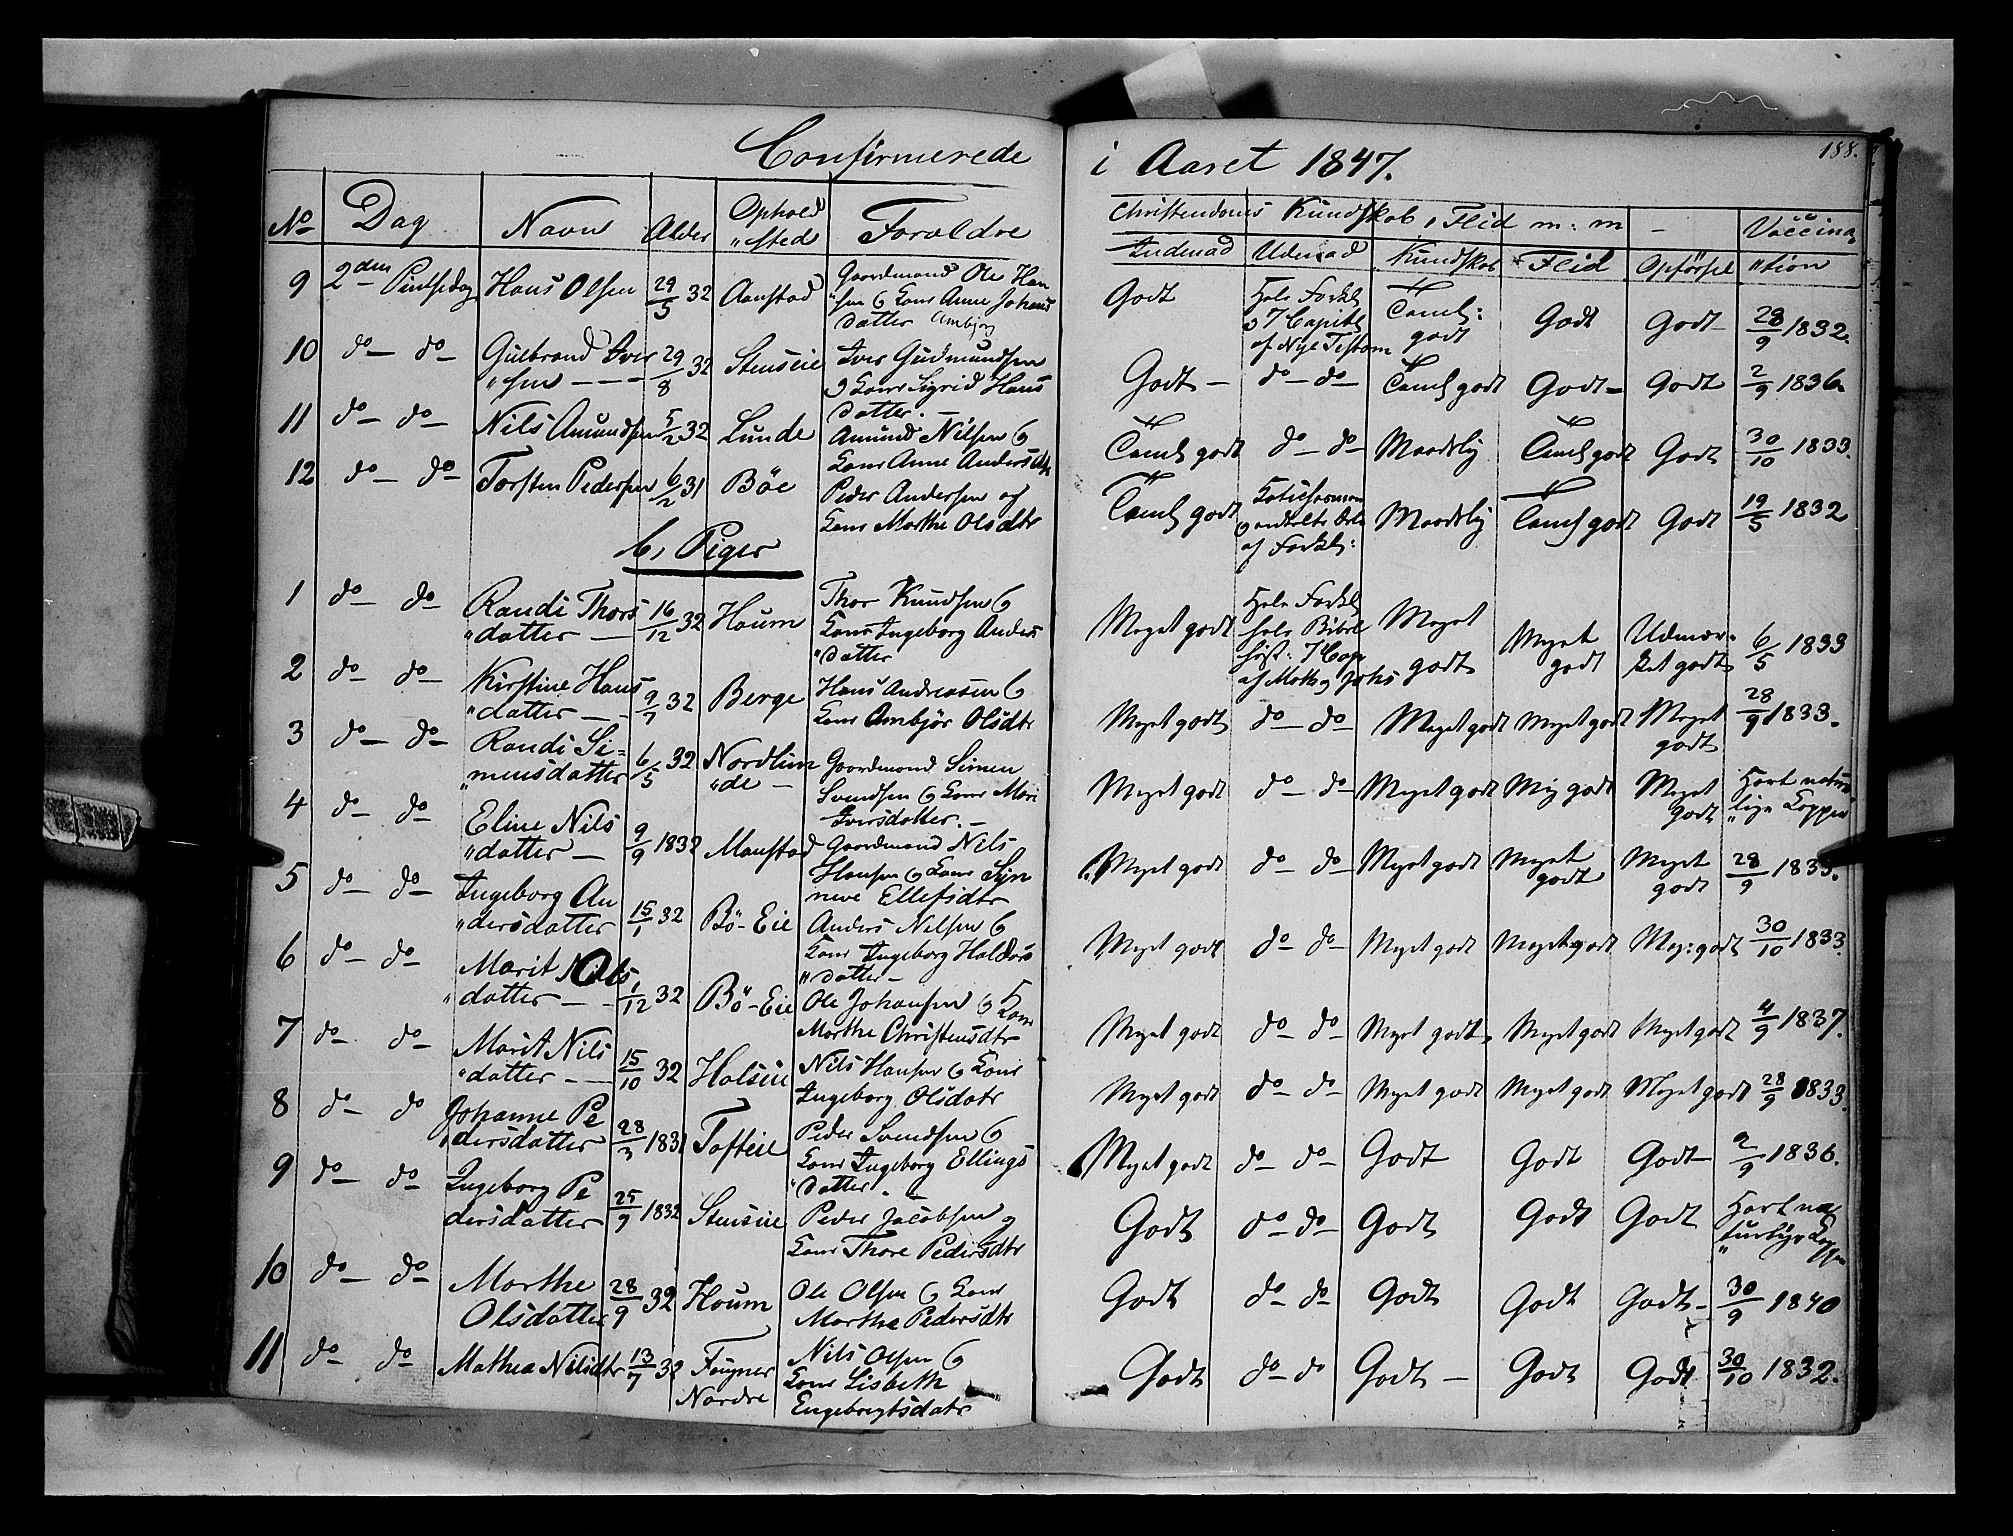 Confirmerede i Aaret 1847.
188.
No Dag Navn Alder Ophold „sted Forældre
Christendoms Kundskab, Flid m: m - Vaccina„
Indenad Udenad Kundskab Flid Opførsel „tion
9 2den Pintsedag Hans Olsen 29/5 32 Aanstad Gaardmand Ole Han
„sen & Kone Anne Johans
datter Ambjør
Godt Hele Forkl: & 7 Capitl af Nye Testam Taml: godt Godt Godt 28/9 1832.
10 do do Gulbrand Iver 29/8 32 Stenseie Iver Gudmundsen
„sen & Kone Sigrid Hans
datter.
Godt do do Taml godt Godt Godt 2/9 1836.
11 do do Nils Amundsen 5/2 32 Lunde Amund Nilsen &
Kone Anne Andersdtr
Taml godt do do Maadelig Taml godt Godt 30/10 1833.
12 do do Torsten Pedersen 6/2 31 Böe Peder Andersen og
Kone Marthe Olsdtr
Taml godt af Forkl: Maadelig Taml godt Godt 19/5 1832
b, Piger
1 do do Randi Thors 16/12 32 Houm Thor Knudsen &
„datter Kone Ingeborg Anders
„datter
Meget godt Hele Forkl hele Bibel hist: 7 Cap af Meget godt Meget godt Udmær„ket godt 6/5 1833
2 do do Kirstine Hans 9/7 32 Berge Hans Andreasen &
„datter Kone Ambjör Olsdtr
Meget godt do do Meget godt Meget godt Meget godt 28/9 1833.
3 do do Randi Si= 6/5 32 Nordlien Gaardmand Simen
„mensdatter „de Svendsen & Kone Mari
Iversdatter.
Meget godt do do Meget godt Meg godt Meget godt Havt natur„lige Kopper
4 do do Eline Nils 9/9 1832 Maanstad Gaardmand Nils
„datter Hansen & Kone Syn
neve Ellefsdtr
Meget godt do do Meget godt Meget godt Meget godt 28/9 1833.
5 do do Ingeborg An 15/1 32 Bö-Eie Anders Nilsen &
„dersdatter Kone Ingeborg Haldors
„datter
Meget godt do do Meget godt Meget godt Meg: godt 30/10 1833.
6 do do Marit Ols 1/12 32 Bö-Eie Ole Johansen & Kone
„datter Marthe Christensdtr
Meget godt do do Meget godt Meget godt Meget godt 4/9 1837.
7 do do Marit Nils 15/10 32 Holseie Nils Hansen & Kone
„datter Ingeborg Olsdatr
Meget godt do do Meget godt Meget godt Meget godt 28/9 1833.
8 do do Johanne Pe 28/3 1831 Tofteie Peder Svendsen &
„dersdatter Kone Ingeborg Ellings
„datter.
Meget godt do do Godt Godt Godt 2/9 1836.
9 do do Ingeborg Pe 25/9 1832 Stenseie Peder Jacobsen og
dersdatter Kone Thore Pedersdtr
Godt do do Godt Godt Godt Havt na„turlige Kopper
10 do do Marthe 28/9 32 Houm Ole Olsen & Kone
Olsdatter Marthe Pedersdtr
Godt do do Godt Godt Godt 30/9 1840
11 do do Mathea Nilsdtr 13/7 32 Fougner Nils Olsen &
Nordre Kone Lisbeth
Engebregtsdatr
Godt do do Godt Godt Godt 30/10 1832.